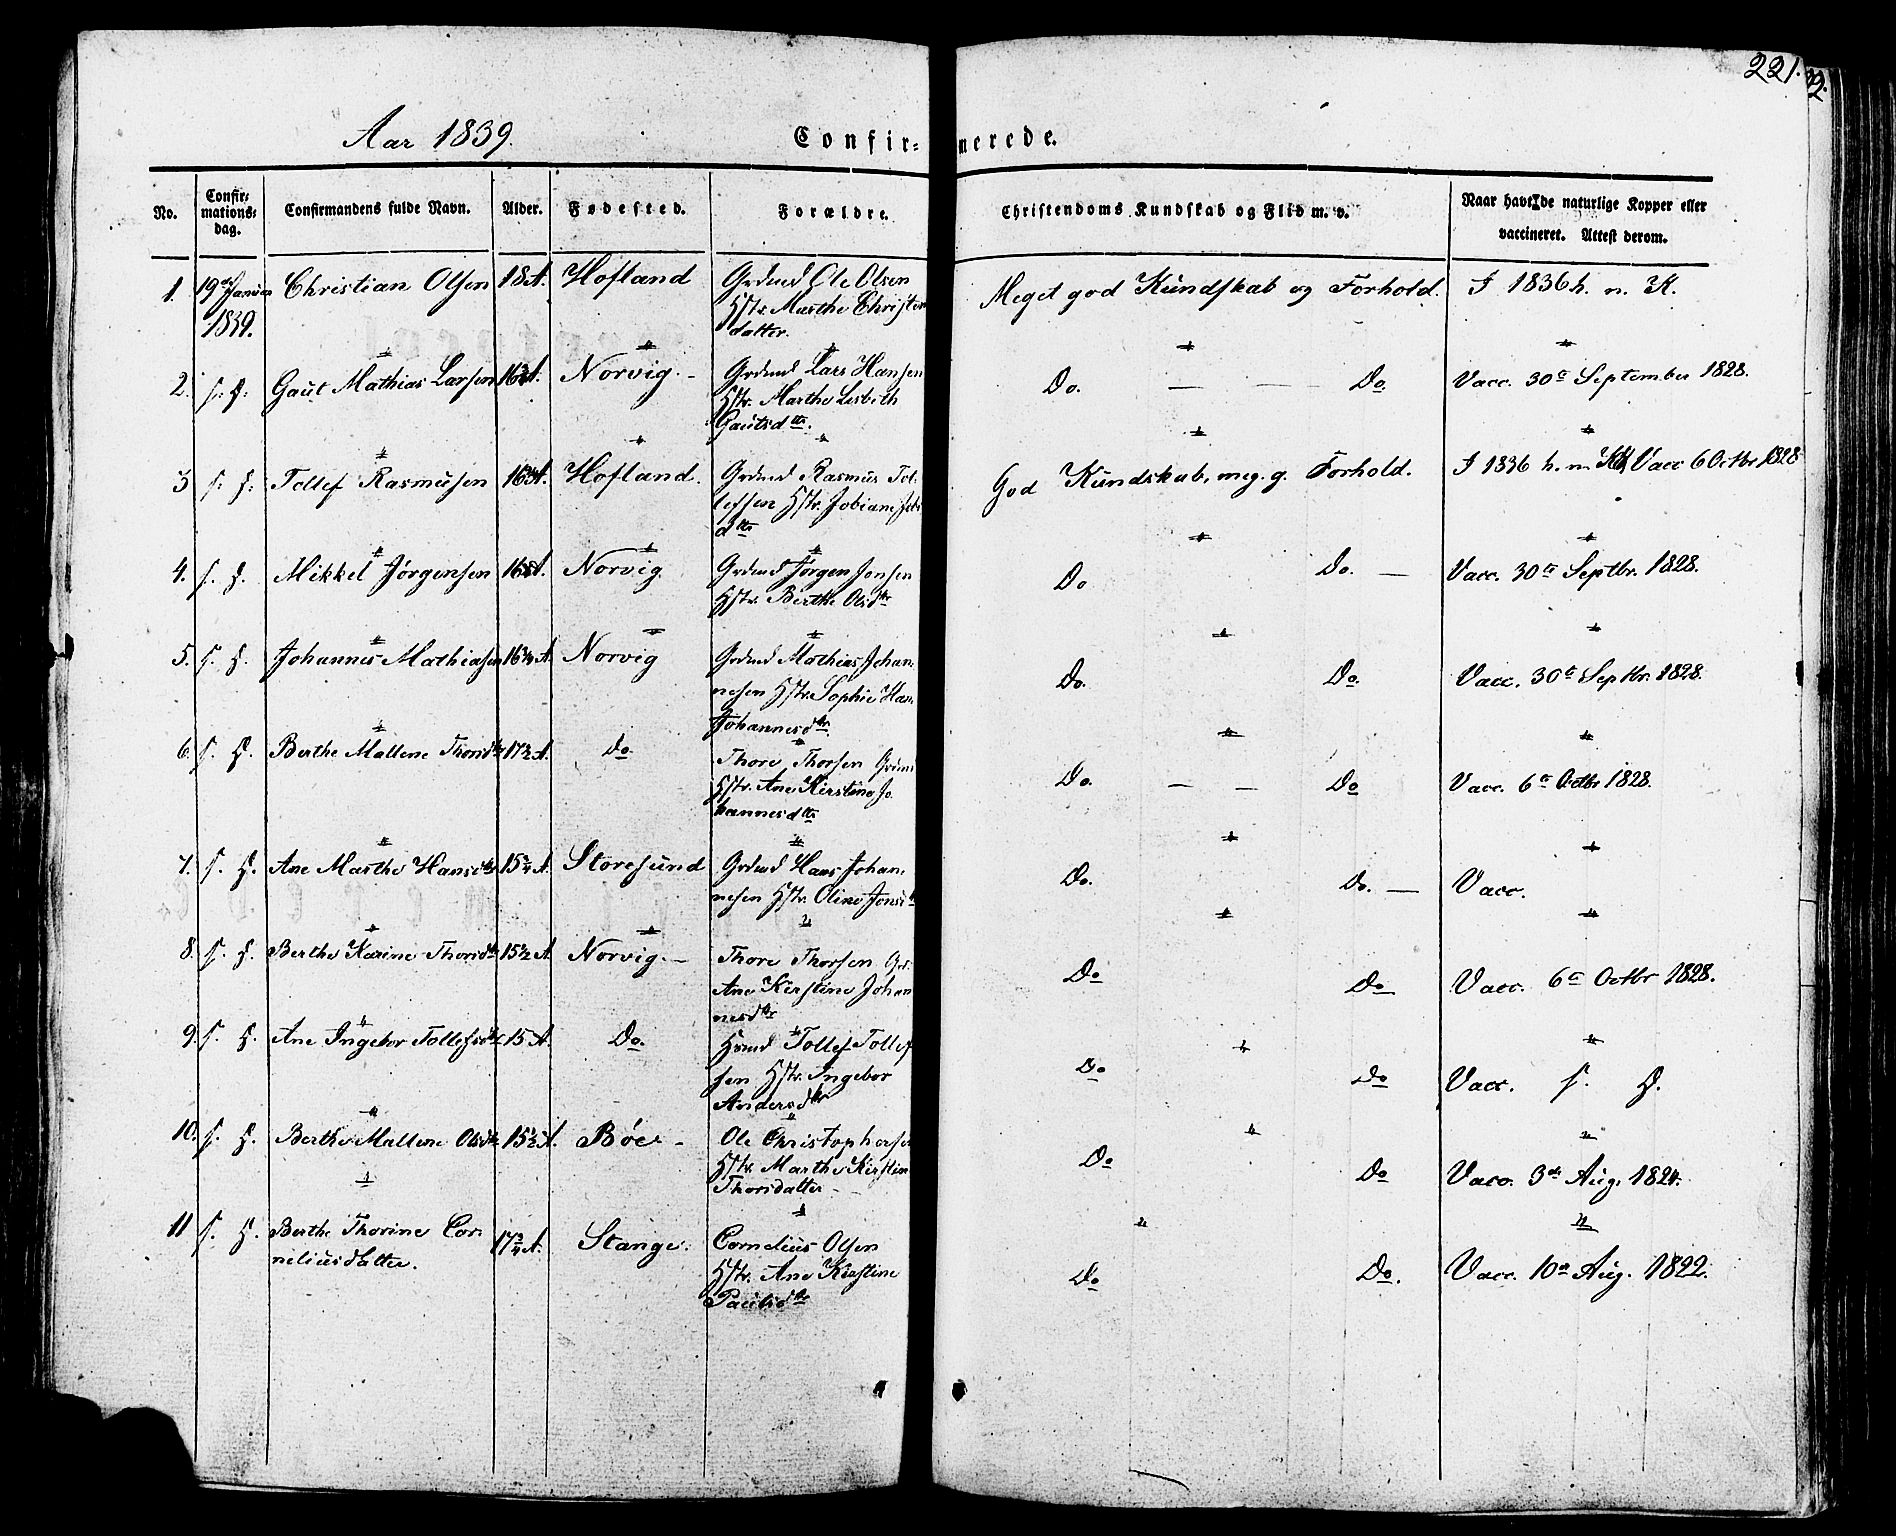 221.
Aar 1839.
Confir-
merede.
No.
Confir-
mations-
dag.
Confirmandens fulde Navn.
Alder.
Fødested.
Forældre.
Christendoms Kundskab og Flid m. v.
Naar havt de naturlige Kopper eller
vaccineret. Attest derom.
1. 19de Januar Christian Olsen 18 A. Hofland Grdmd Ole Olsen
1839. Hstr. Marthe Christens
datter.
Meget god Kundskab og Forhold. I 1836 h. n. K.
2. s. D. Gaut Mathias Larsen Norvig. Grdmd Lars Hansen
Hstr. Marthe Lisbeth
Gautsdtr.
Do. Do Vacc. 30te September 1828.
3 s. D. Tollef Rasmusen Hofland. Grdmd Rasmus Tol-
lefsen Hstr.
dtr
God Kundskab, meg. g. Forhold. I 1836 h. n. K. Vacc 6 Octbr 1828
4. s. D. Mikkel Jørgensen Norvig Grdmd Jørgen Jonsen
Hstr. Berthe Olsdtr
Do Do. Vacc. 30te Septbr. 1828.
5. s. D. Johannes Mathiasen 16¼ A. Norvig Grdmd Mathias Johan-
nesen Hstr. Sophie
Johannesdtr.
Do. Do Vacc. 30te Septbr. 1828.
6. s. D. Berthe Mallene Thorsdtr 17½ A. Do Thore Thorsen Grdmd
Hstr. Ane Kirstine Jo
hannesdtr
Do. Do Vacc. 6te Octbr 1828.
7. s. D. Ane Marthe Hansdtr A. Storesund Grdmd Hans Johan-
nesen Hstr. Oline Jonsdtr
Do. Do. Vacc.
8. s. D. Berthe Karine Thorsdtr 15½ A Norvig. Thore Thorsen Gr.
Ane Kirstine Johan
nesdtr
Do Do Vacc. 6te Octbr 1828.
9. s. D. Ane Ingebor Tollefsdtr 15 A. Do. Hsmd Tollef Tollef
sen Hstr. Ingebor
Andersdtr
Do Do Vacc. s. D.
10. s. D. Berthe Mallene Olsdtr 15½ A. Bøe Ole Christophersen
Hstr. Marthe Kirstine
Thorsdatter
Do Do Vacc. 3de Aug. 1824.
11 s. D. Berthe Thorine Cor- 17¾ A. Stange. Cornelius Olsen
neliusdatter. Hstr. Ane Kirstine
Paulsdtr
Do Do. Vacc. 10de Aug. 1822.